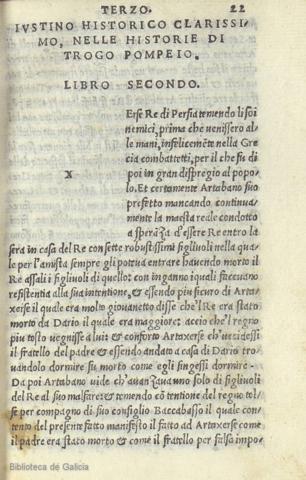 TERZO. 22
IVSTINO HISTORICO CLARISSI-
MO, NELLE HISTORIE DI
TROGO POMPEIO.
LIBRO SECONDO.
x
Erse Re di Persia temendo li soi
nemici, prima che venissero al-
le mani, infelicemẽte nella Gre
cia combattetti, per il che fu di
poi in gran dispregio al popo-
lo. Et certamente Artabano suo
prefetto mancando continua-
mente la maesta reale condotto
a sperãza d'essere Re entro la
sera in casa del Re con sette robustissimi figliuoli nella qua-
le per l'amista sempre gli pottua entrare havendo morto il
Re assali i figliuoli di quello: con inganno iquali facevano
resistentia alla sua intentione, & essendo piu sicuro di Arta-
xerse il quale era molto giovanetto disse che'l Re era stato
morto da Dario il quale era maggiore: accio che'l regno
piu tosto vegnisse a lui: & conforto Artaxerse ch'uccidessi
il fratello del padre & essendo andato a casa di Dario tro-
vandolo dormire fu morto come egli fingessi dormire.
Da poi Artabano vide ch'avanzava uno solo di figliuoli
del Re al suo malfare: & temendo cõ tentione del regno tol-
se per compagno di suo consiglio Baccabasso il quale con-
tento del presente fatto manifesto il fatto ad Artaxerse come
il padre era stato morto & come il fratello per falsa impo-
Biblioteca de Galicia